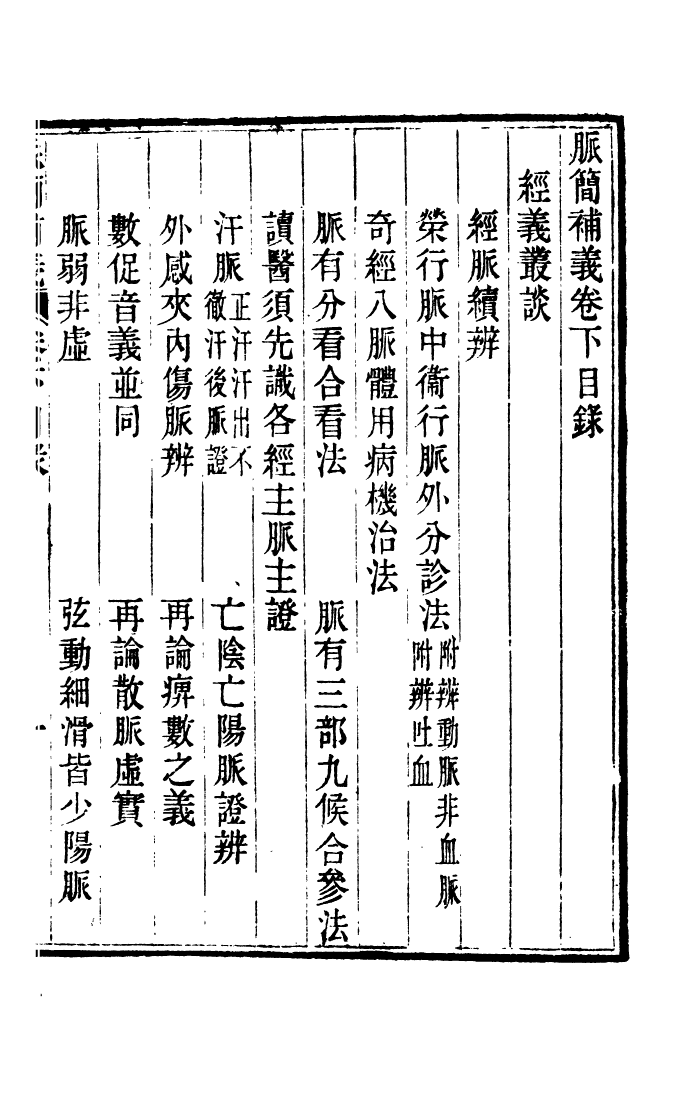 脈簡補義卷下目錄
經義叢談
經脈續辨
榮行脈中衞行脈外分診法附辨動脈非血脈附辨吐血
奇經八脈體用病機治法
脈有分看合看法　脈有三部九候合參法
讀醫須先識各經主脈主證
汗脈正汗汗出不徹汗後脈證　亡陰亡陽脈證辨
外感夾內傷脈辨　再論痹數之義
數促音義並同　再論散脈虛實
脈弱非虛　弦動細滑皆少陽脈